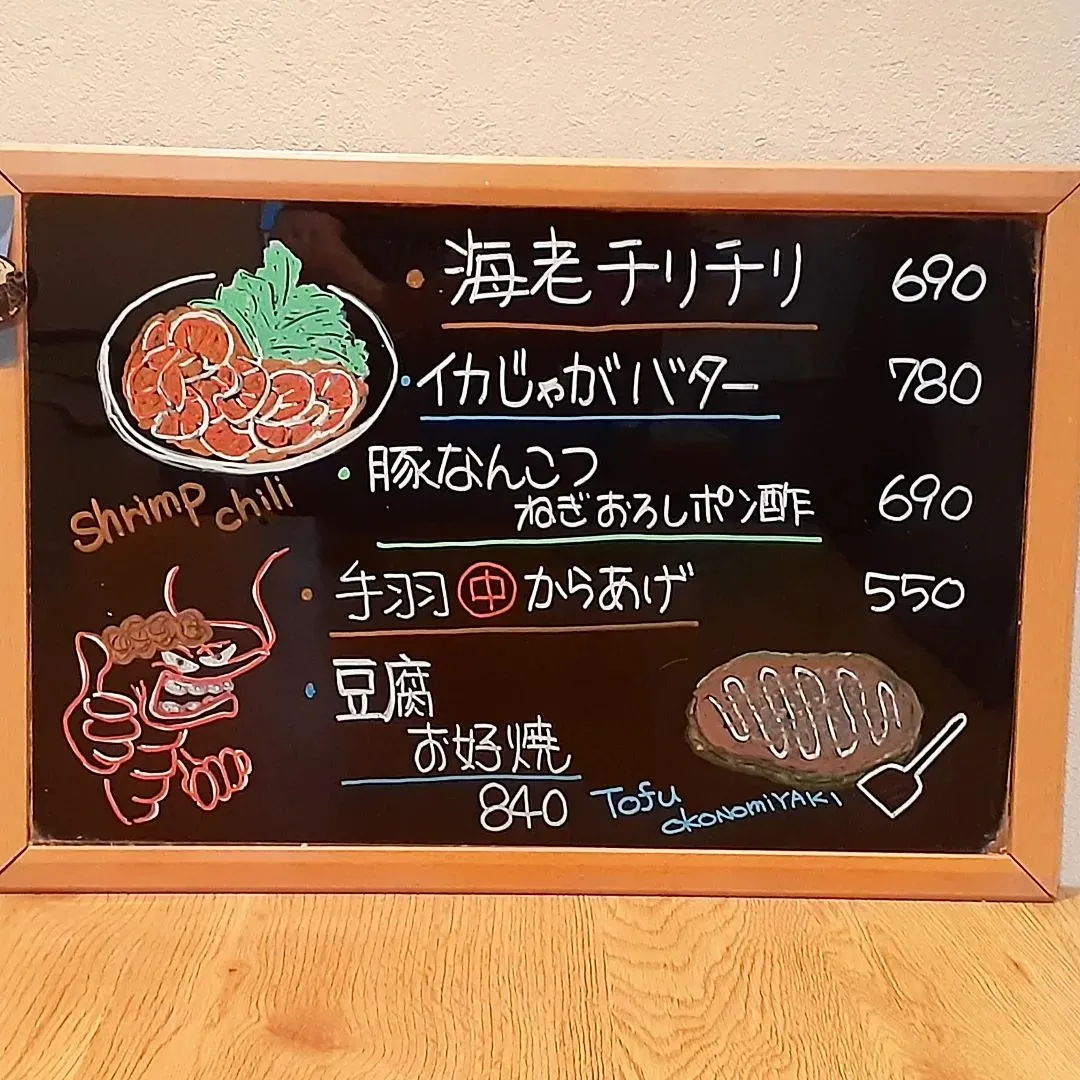 海老チリチリ 690
イカじゃがバター 780
豚なんこつ
ねぎおろしポン酢 690
手羽㊥からあげ 550
豆腐
お好焼
840
shrimp chili
Tofu
okonomiYAKi